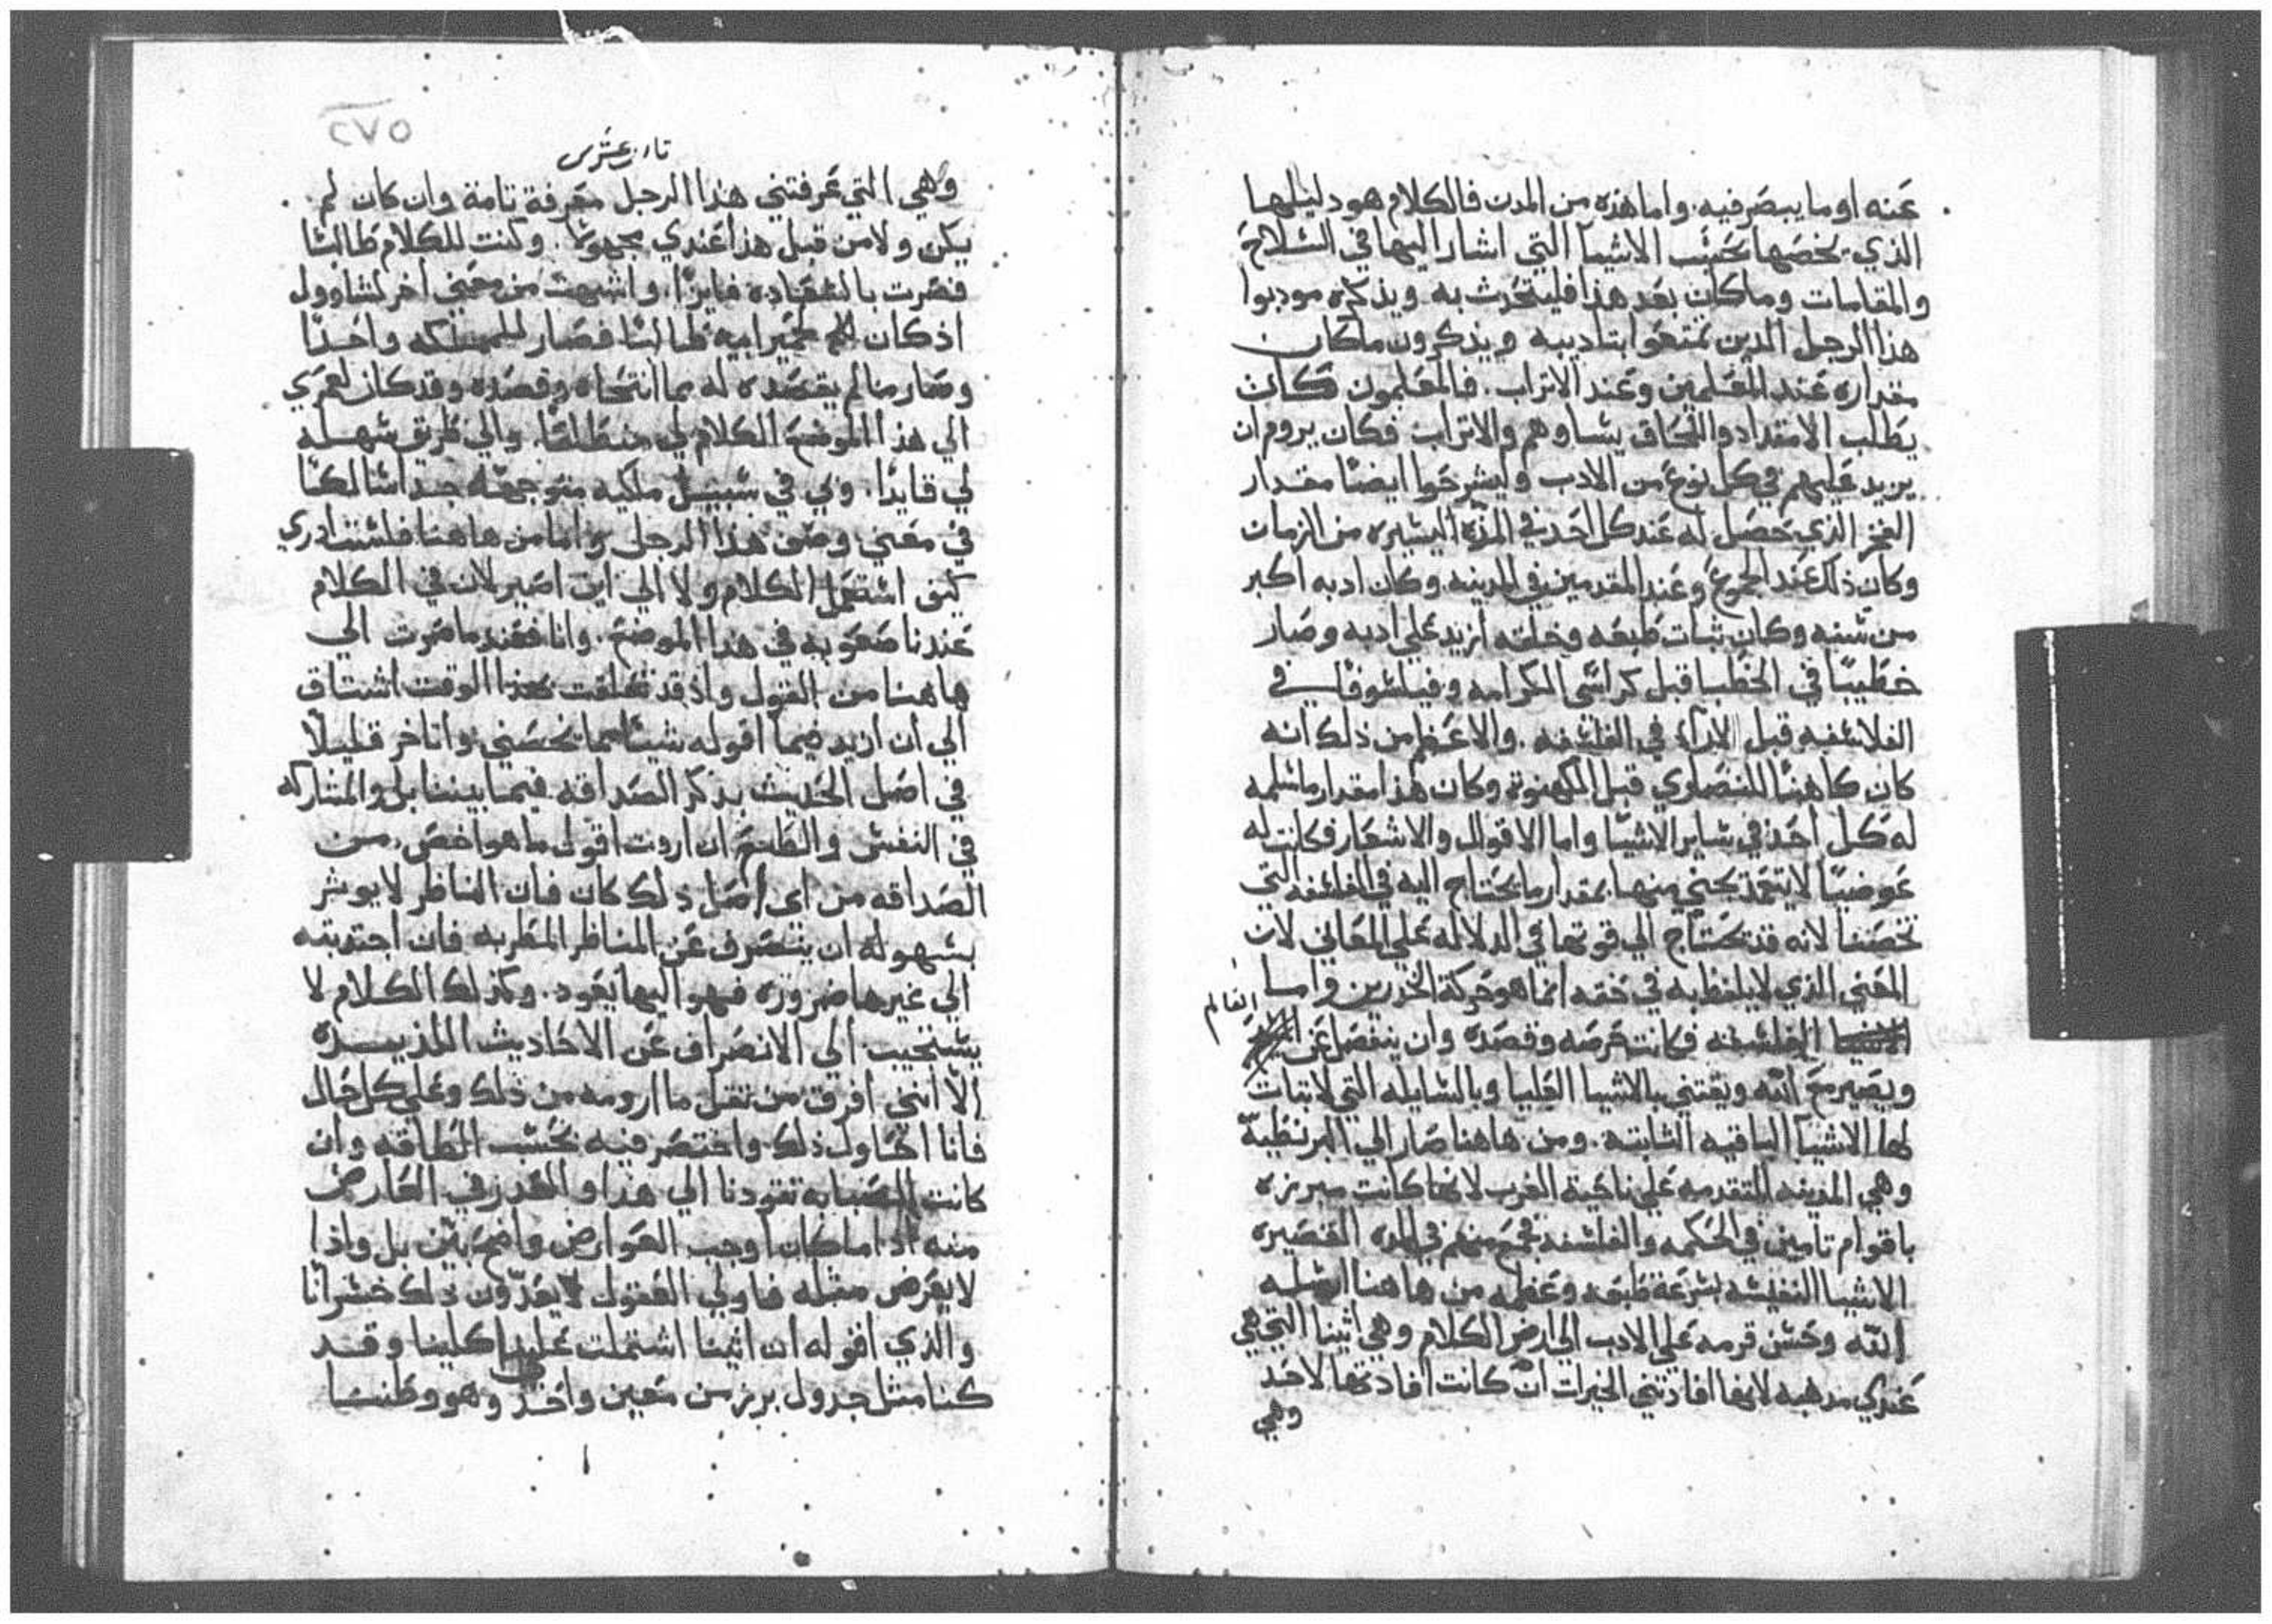 عنه او ما يبصر فيه. واما هذه من المدن فالكلام هو دليلها
الذي يخصها بحسب الاشيا التي اشار اليها في السلاح
والمقامات وما كان بعد هذا فليتحدث به ويذكره مودبوا
هذا الرجل الدين تمتعوا بتاديبه ويذكرون ما كان
مقداره عند المعلمين وعند الاتراب. فالمعلمون كان
يطلب الامتداد واللحاق بشاوهم والاتراب فكان يروم ان
يزيد عليهم في كل نوع من الادب وليشرحوا ايضا مقدار
الفخر الذي حصل له عند كل احد في المدة اليسيره من الزمان
وكان ذلك عند الجموع وعند المقدمين في المدينه وكان ادبه اكبر
من سنه وكان ثبات طبعه وخلقه ازيد على ادبه وصار
خطيبا في الخطبا قبل كراسي الكرامه وفيلسوفا في
الفلاسفه قبل الارآء في الفلسفه. والاعظم من ذلك انه
كان كاهنا للنصاري قبل الكهنوة وكان هذا مقدار ما سلمه
له كل احد في ساير الاشيا واما الاقوال والاشعار فكانت له
عوضيا لا يتعمد يجني منها بمقدار ما يحتاج اليه في الفلسفه التي
تخصنا لانه قد تحتاج الي قوتها في الدلاله علي المعاني لان
المعني الذي لا يلفظ به في حقه انما هو حركة الخدرين واما
الفلسفه فكانت حرصه وقصده وان ينفصل عن العالم
ويصير مع الله ويقتني بالاشيا العليا وبالسايله التي لا ثبات
لها الاشيآ الباقيه الثابته. ومن هاهنا صار الي البرنطية
وهي المدينه المتقدمه علي ناحية الغرب لانها كانت مبرزه
باقوام تامين في الحكمه والفلسفه فجمع منهم في المده القصيره
الاشيا النفيسه بسرعة طبعه وعظمه من هاهنا ارسله
الله وحسن قرمه علي الادب الي ارض الكلام وهي اثينا التي هي
عندي مذهبه لانها افادتني الخيرات ان كانت افادتها لاحد
وهي
٢٧٥
وهي التي عرفتني هذا الرجل معرفة تامة وان كان لم
يكن ولا من قبل هذا عندي مجهولا. وكنت للكلام طالبا
فصرت بالسعاده فايزا. واشبهت من معني اخر لشاوول
اذ كان لحمير ابيه طالبا فصار للمملكه واحدا
وصار ما لم يقصده له مما انتحاه وقصده وقد كان لعمري
الي هذا الموضع الكلام لي منطلقا. والي طريق سهله
لي قايدا. ولي في سبيل ملكيه متوجهه جدا سالكا
في معني وصف هذا الرجل وانا من هاهنا فلست ادري
كيف استعمل الكلام ولا الي اين اصير لان في الكلام
عندنا صعوبه في هذا الموضع. وانا فعند ما صرت الي
هاهنا من القول واذ قد تعلقت بهذا الوقت اشتاق
الي ان ازيد فيما اقوله شيئا مما يخصني واتاخر قليلا
في اصل الحديث بذكر الصداقه فيما بيننا بل والمشاركه
في النفس والطبع ان اردت اقول ما هو اخص من
الصداقه من اي اصل ذلك كان فان الناظر لا يوثر
بسهوله ان ينصرف عن المناظر المطربه فان اجتذبته
الي غيرها ضروره فهو اليها يعود. وكذلك الكلام لا
يستجيب الي الانصراف عن الاحاديث اللذيذه
الا انني افرق من ثقل ما ارومه من ذلك وعلي كل حال
فانا احاول ذلك واختصر فيه بحسب الطاقه وان
كانت الصبابه تقودنا الي هذا والعذر في العارض
منه اذا ما كان اوجب العوارض واضح بين بل واذا
لا يعرض مثله فاولي العقول يعدّون ذلك خسرانا
والذي اقوله ان اثينا اشتملت علينا كلينا وقد
كنا مثل جدول برز من معين واحد وهو وطننا